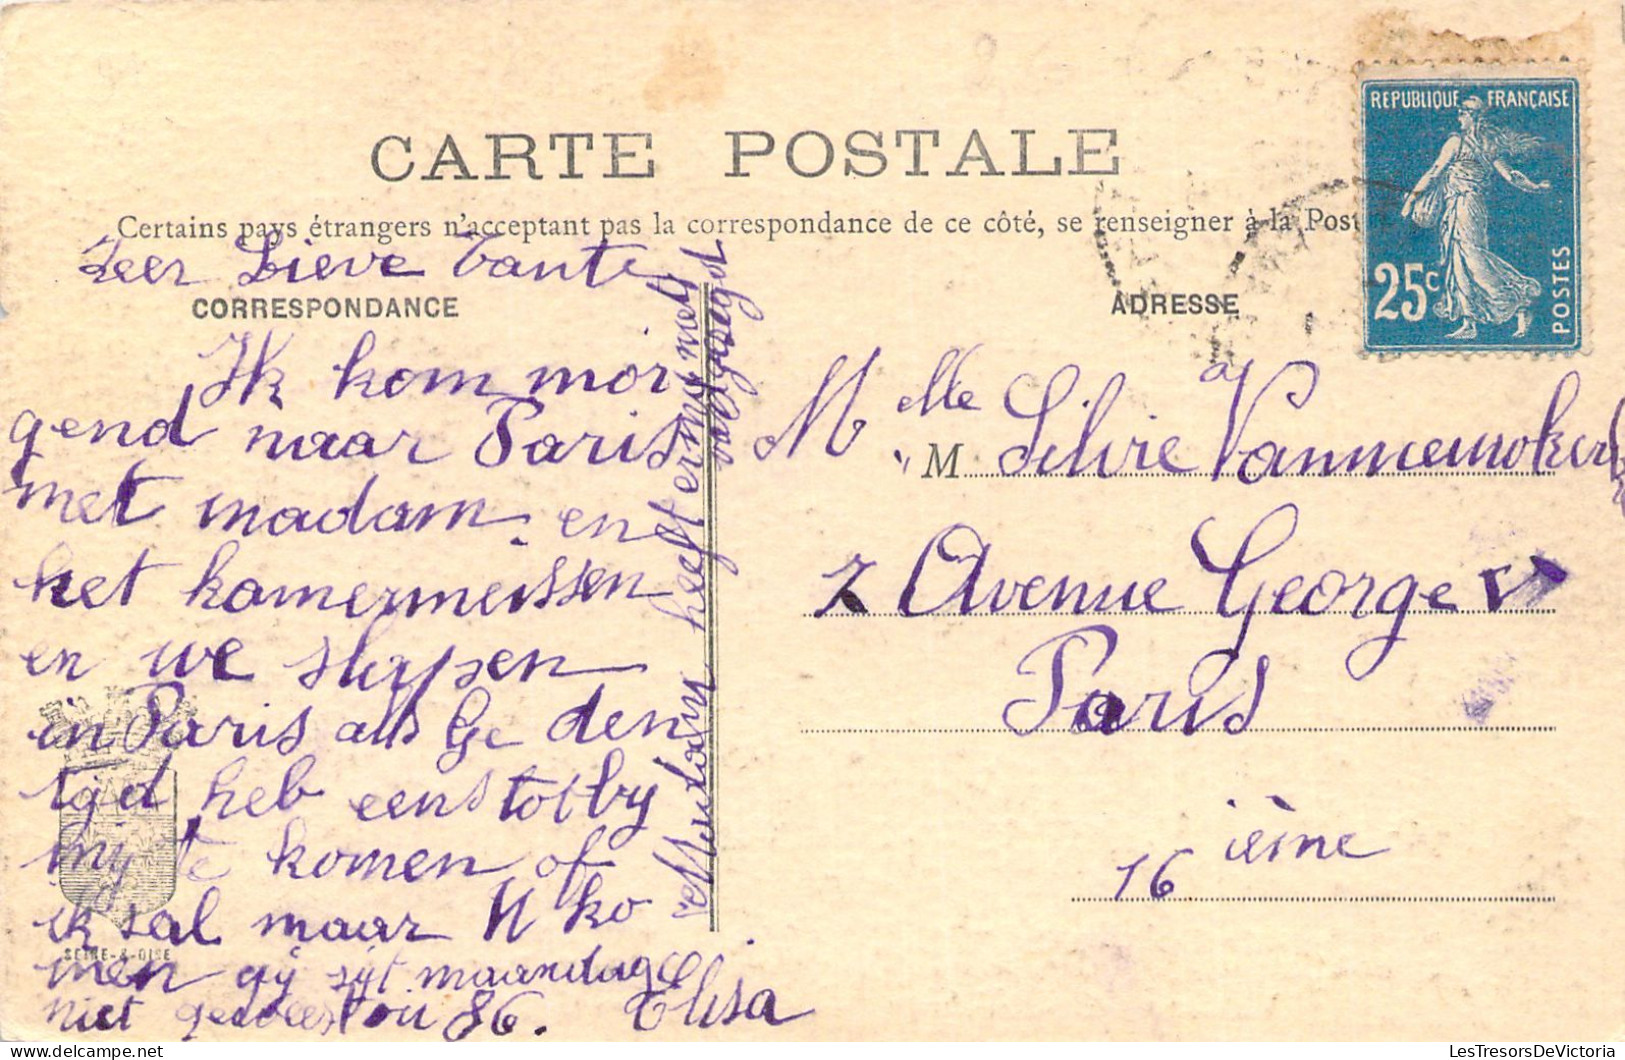 CARTE POSTALE
Certains pays étrangers n'acceptent pas la correspondance de ce côté, se renseigner à la Post
REPUBLIQUE FRANÇAISE
25c
POSTES
Zeer Lieve Tante
CORRESPONDANCE
Ik kom mor
gend naar Paris
met madam en
het kamermeissen
en we slapen
in Paris als Ge den
tijd heb eens tot by
my te komen of
ik sal naar U ko
men gij sijt maandag
niet geweest ou 86.
Elisa
SEINE-&-OISE
heeft er mij
ADRESSE
Melle
M Silvie Van
2 Avenue George V
Paris
16 ième
LesTresorsDeVictoria
www.delcampe.net